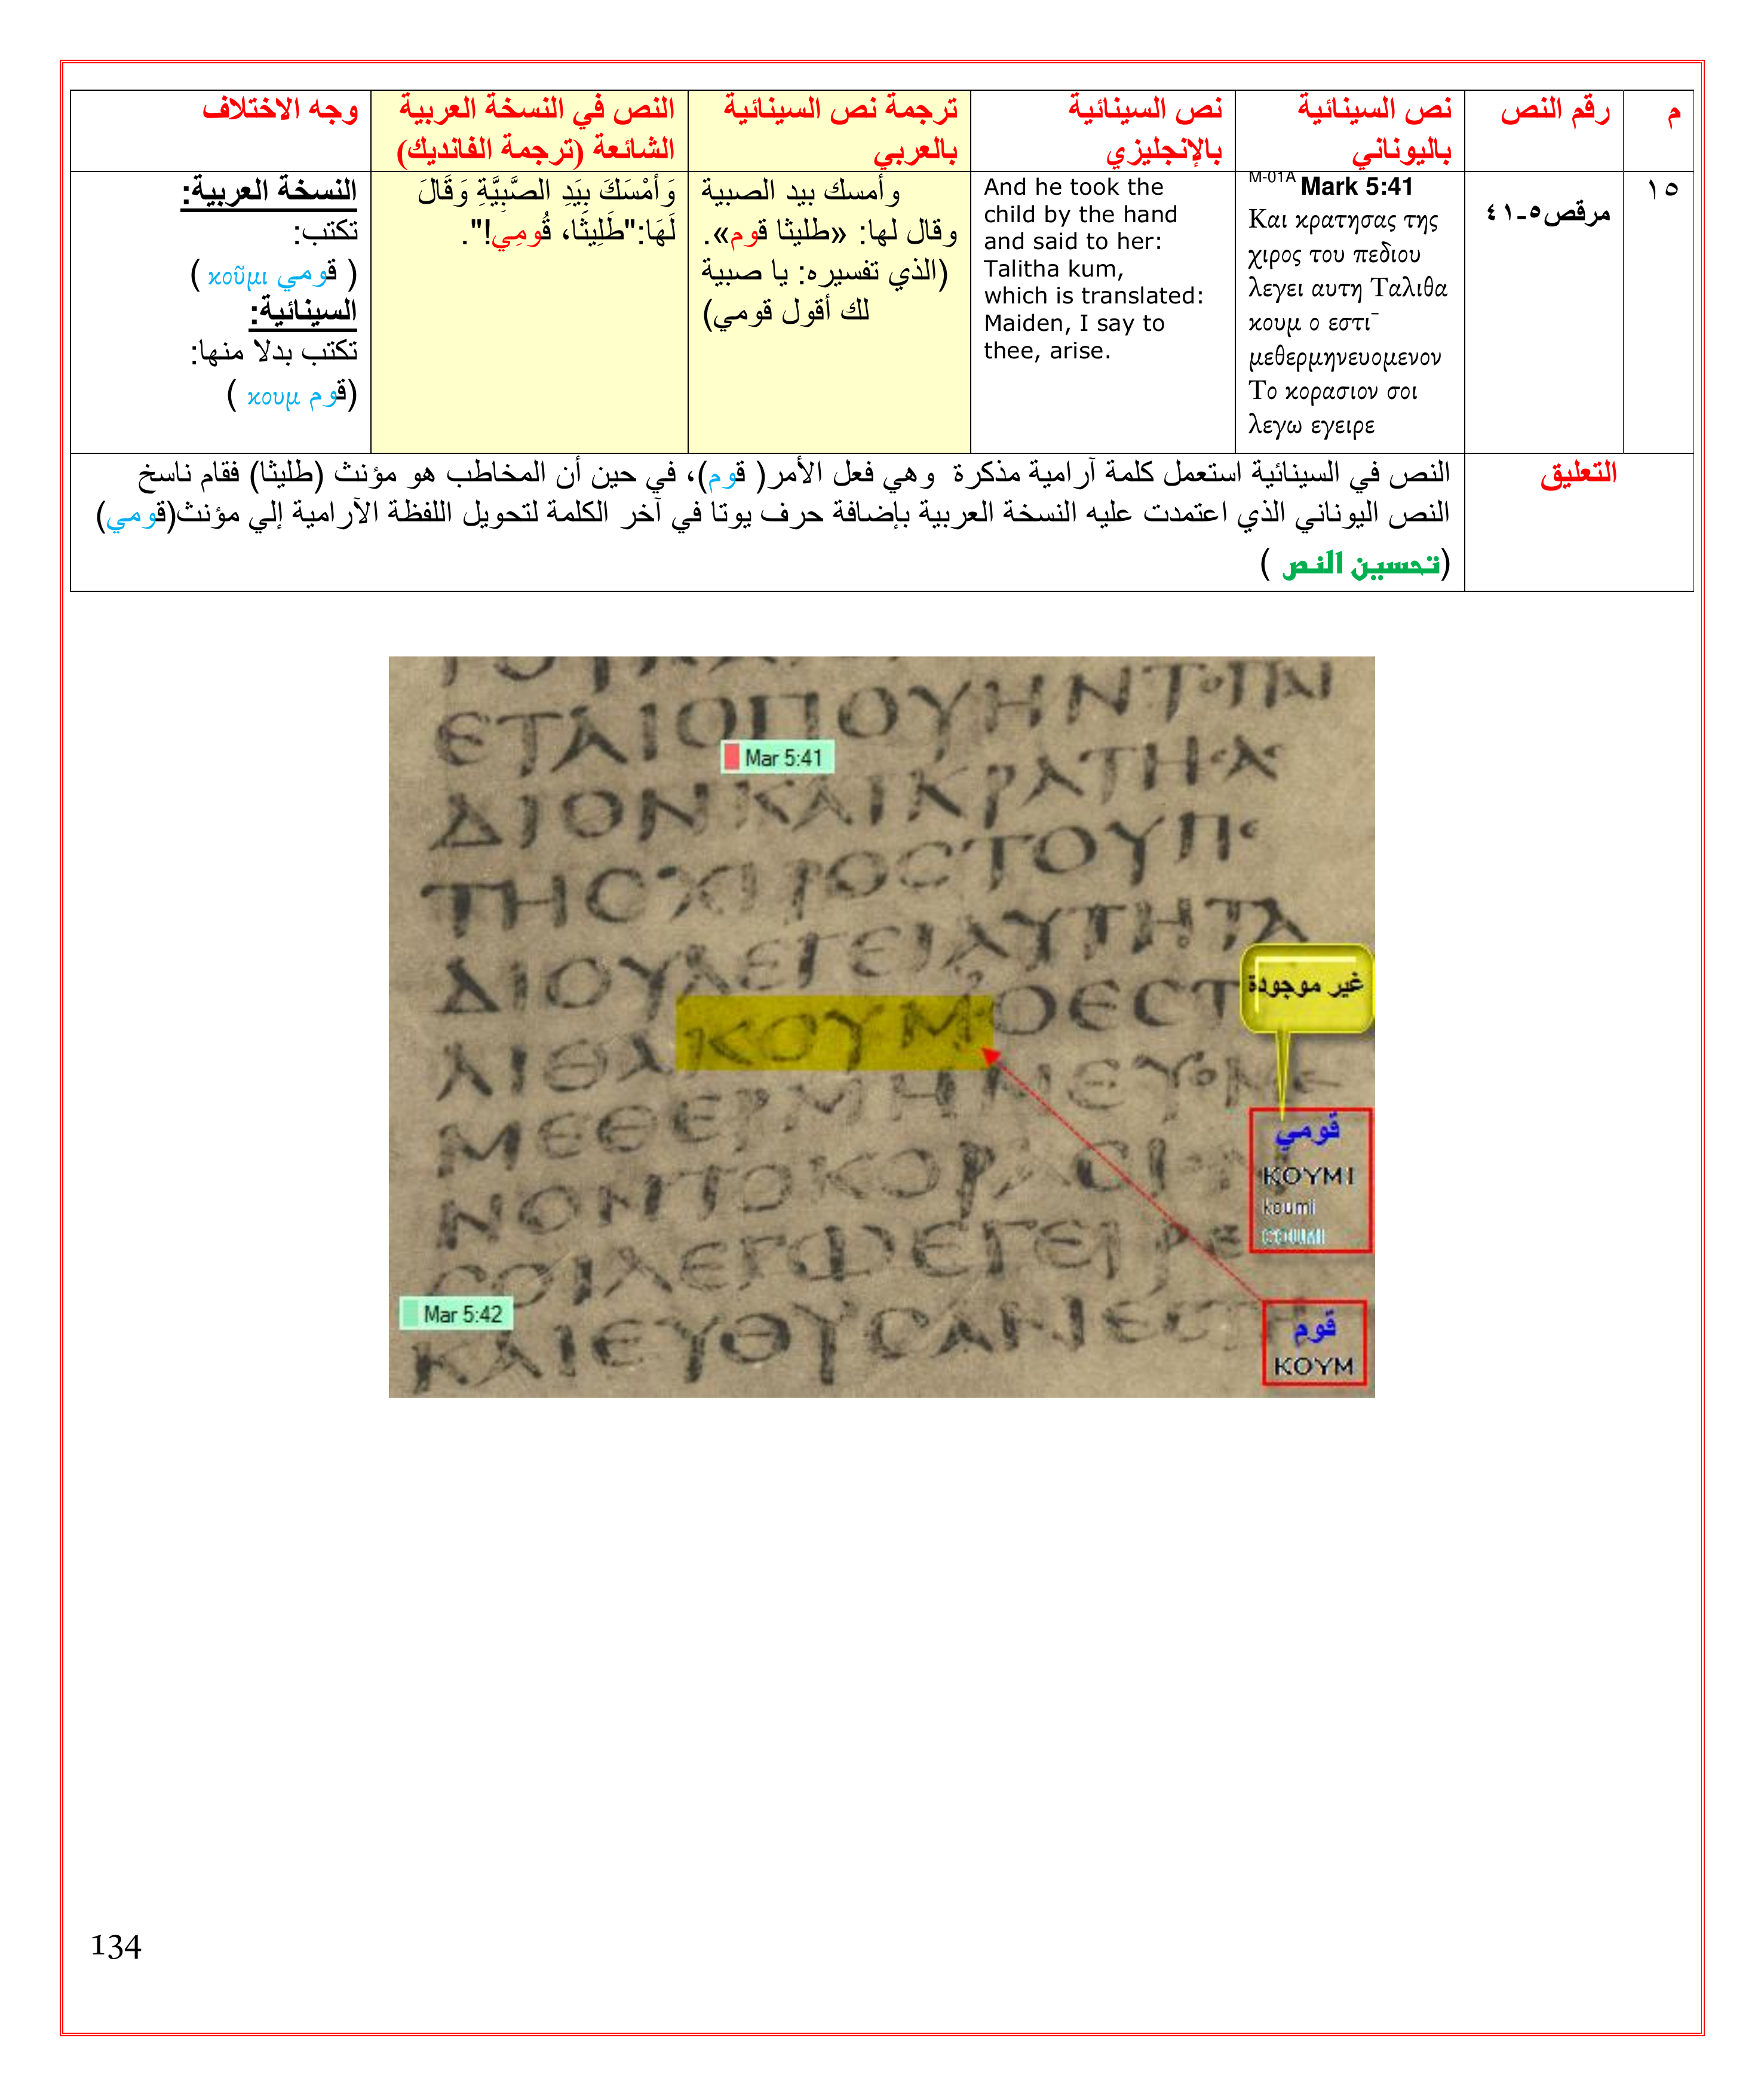 م
رقم النص
نص السينائية
باليوناني
نص السينائية
بالإنجليزي
ترجمة نص السينائية
بالعربي
النص في النسخة العربية
الشائعة (ترجمة الفانديك)
وجه الاختلاف
١٥
مرقص٥-٤١
M-01A Mark 5:41
Και κρατησας της
χιρος του πεδιου
λεγει αυτη Ταλιθα
κουμ ο εστι¯
μεθερμηνευομενον
Το κορασιον σοι
λεγω εγειρε
And he took the
child by the hand
and said to her:
Talitha kum,
which is translated:
Maiden, I say to
thee, arise.
وأمسك بيد الصبية
وقال لها: «طليثا قوم».
(الذي تفسيره: يا صبية
لك أقول قومي)
وَأَمْسَكَ بِيَدِ الصَّبِيَّةِ وَقَالَ
لَهَا:"طَلِيثَا، قُومِي!".
النسخة العربية:
تكتب:
( قومي κοῦμι )
السينائية:
تكتب بدلا منها:
(قوم κουμ )
التعليق
النص في السينائية استعمل كلمة آرامية مذكرة وهي فعل الأمر( قوم)، في حين أن المخاطب هو مؤنث (طليثا) فقام ناسخ
النص اليوناني الذي اعتمدت عليه النسخة العربية بإضافة حرف يوتا في آخر الكلمة لتحويل اللفظة الآرامية إلي مؤنث(قومي)
(تحسين النص )
ΕΤΑΙΟΠΟΥΗΝΤΟΠΑΙ
Mar 5:41
ΔΙΟΝΚΑΙΚΡΑΤΗCΑC
ΤΗCΧΙΡΟCΤΟΥΠΕ
ΔΙΟΥΛΕΓΕΙΑΥΤΗΤΑ
ΛΙΘΑΚΟΥΜΟΕCΤ
غير موجودة
ΜΕΘΕΡΜΗΝΕΥΟΜΕ
قومي
KOYMI
koumi
COUMI
ΝΟΝΤΟΚΟΡΑCΙΟΝ
CΟΙΛΕΓΩΕΓΕΙΡΕ
Mar 5:42
ΚΑΙΕΥΘΥCΑΝΕCΤΗ
قوم
KOYM
134